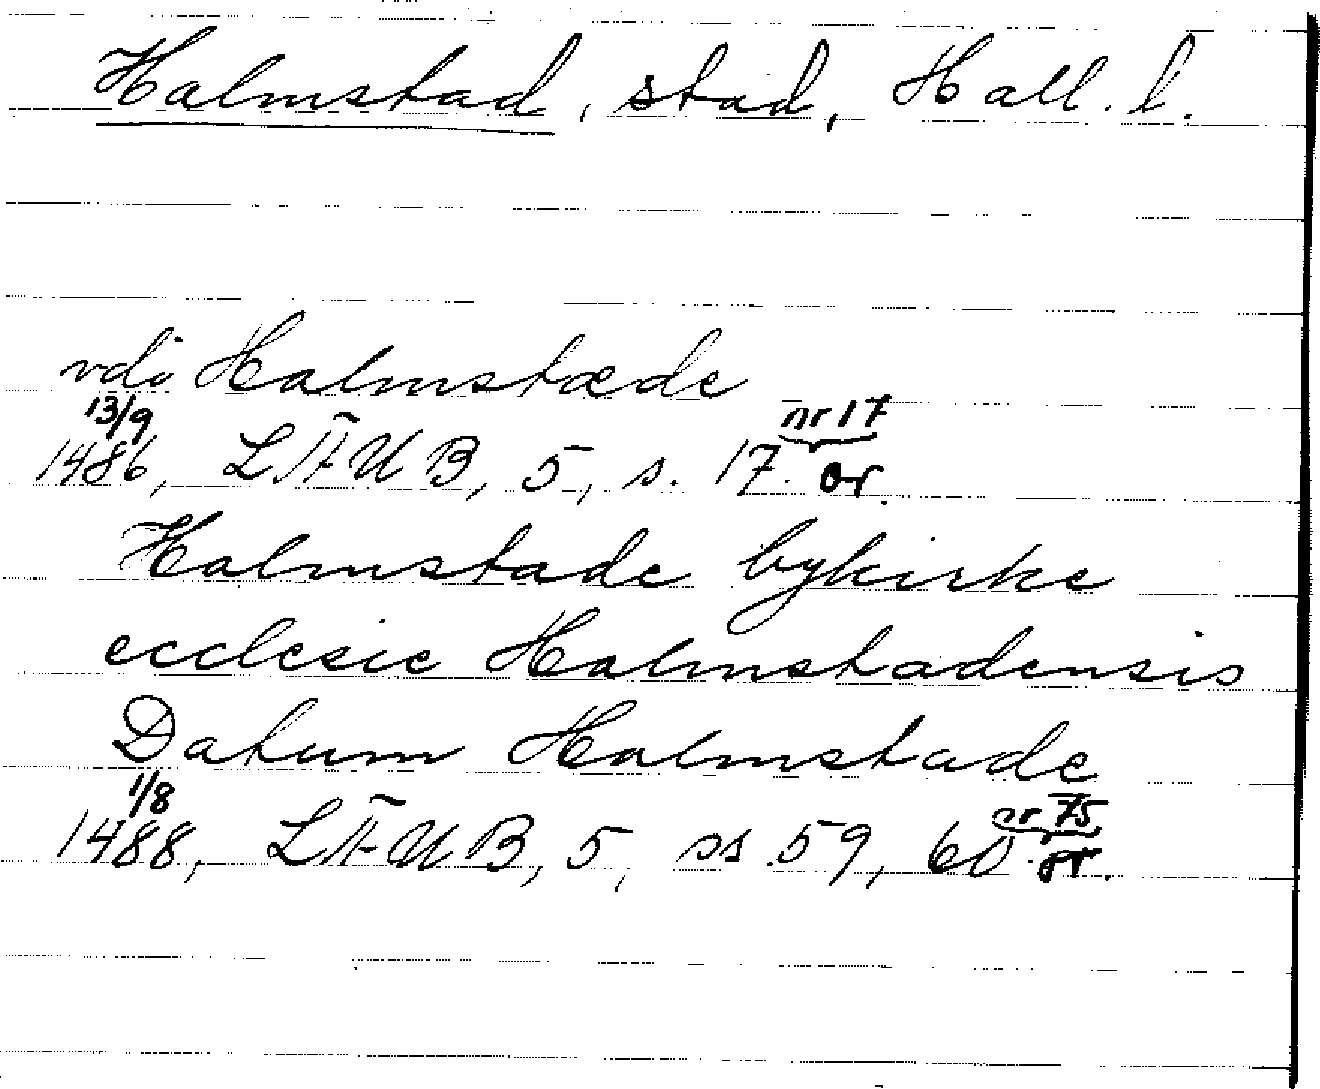 Halmstad, stad, Hall. l.
vdi Halmstæde
13/9 nr 17
1486, LÄUB, 5, s. 17. or.
Halmstade bykirke
ecclesie Halmstadensis
Datum Halmstade
1/8 nr 75
1488, LÄUB, 5, ss 59, 60. or.